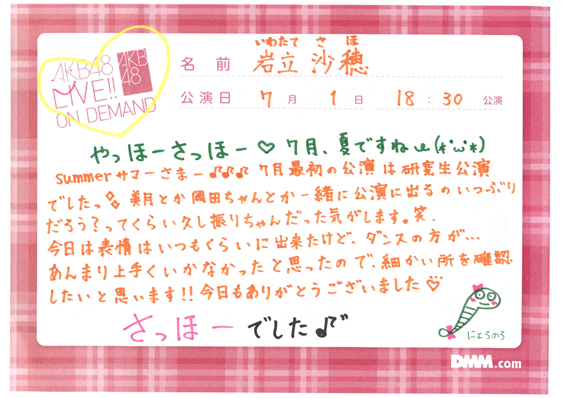 AKB48
LIVE!!
ON DEMAND
AKB
48
いわたて さほ
名前 岩立 沙穂
公演日 7月 1日 18:30 公演
やっほーさっほー♡7月、夏ですねω(*'ω'*)
summerサマーさまー♪♪♪7月最初の公演は研究生公演
でしたっ 美月とか岡田ちゃんとか一緒に公演に出るのいつぶり
だろう?ってくらい久し振りちゃんだった気がします。笑.
今日は表情はいつもくらいに出来たけど、ダンスの方が…
あんまり上手くいかなかったと思ったので、細かい所を確認
したいと思います!!今日もありがとうございました♡
さっほーでした♪
にょろのろ
DMM.com